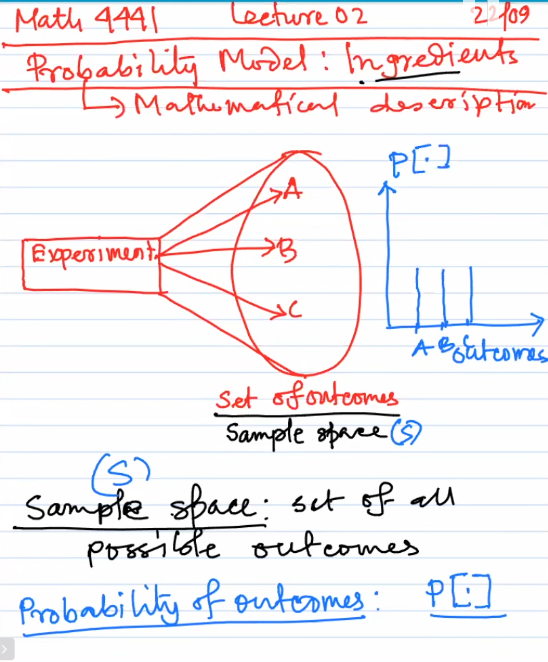 Math 4441 Lecture 02 22/09
Probability Model: Ingredients
↳ Mathematical description
P[·]
A
Experiment
B
C
A B C outcomes
Set of outcomes
Sample space (S)
(S)
Sample space: set of all
possible outcomes
Probability of outcomes: P[·]